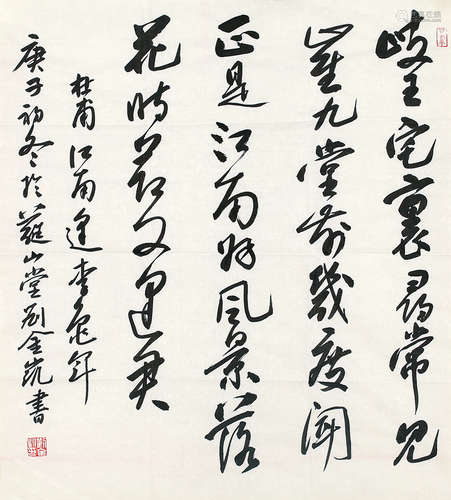 岐王宅裏尋常見
崔九堂前幾度聞
正是江南好風景落
花時節又逢君
杜甫江南逢李龜年
庚子初冬於山堂劉金凱書